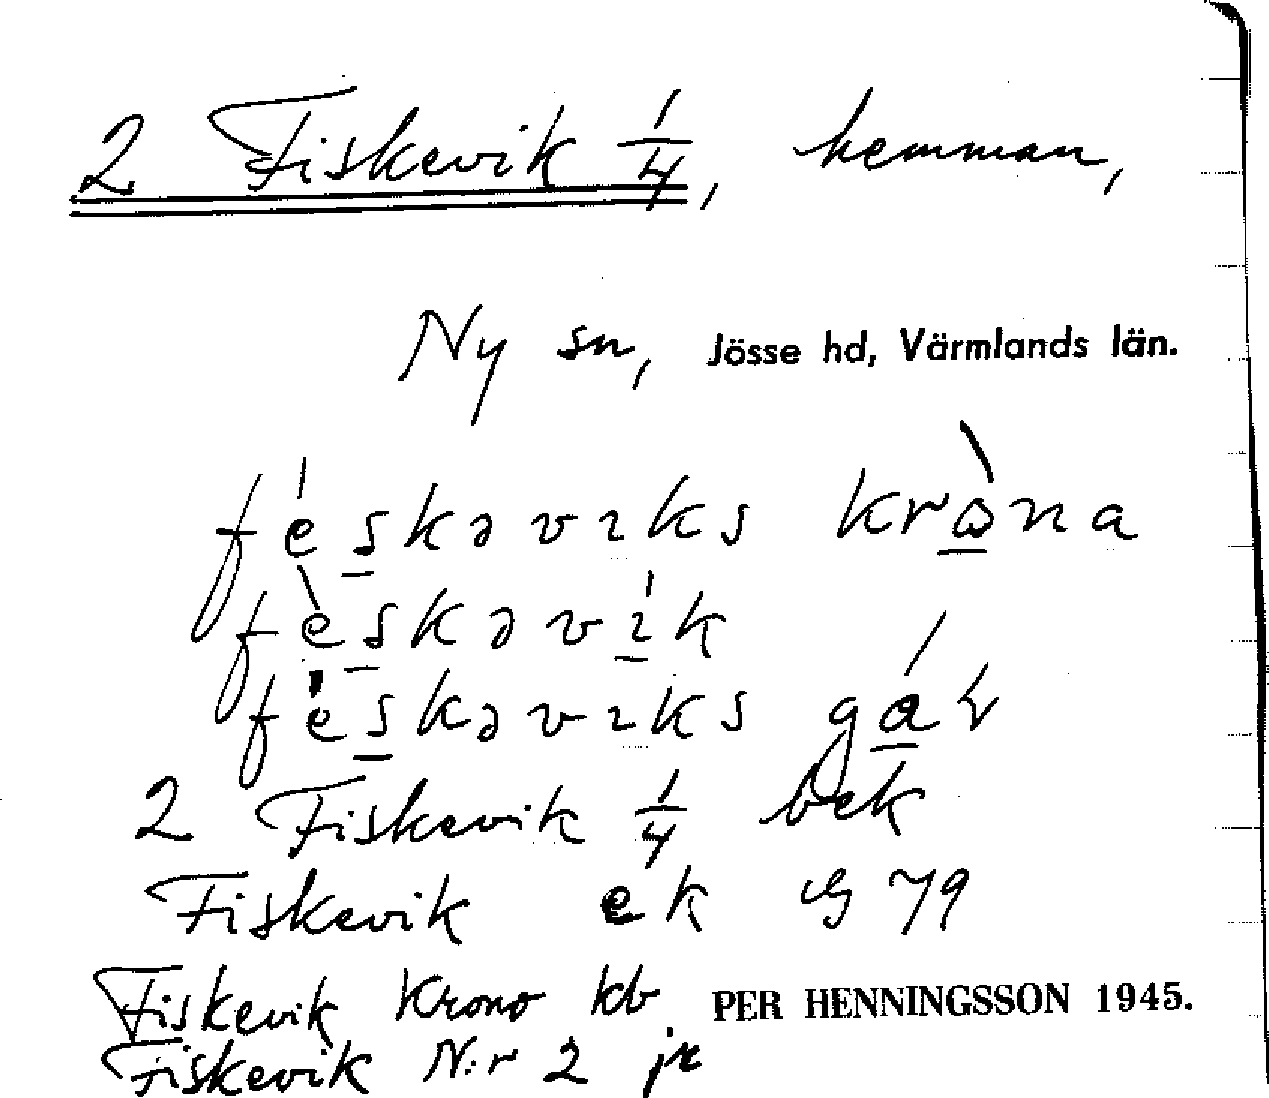 2 Fiskevik 1/4, hemman,
Ny sn, Jösse hd, Värmlands län.
féskəvıks kròna
fèskəvík
féskəvıks gáɽ
2 Fiskevik 1/4 bek
Fiskevik ek G 79
Fiskevik Krono kb PER HENNINGSSON 1945.
Fiskevik N:r 2 jr